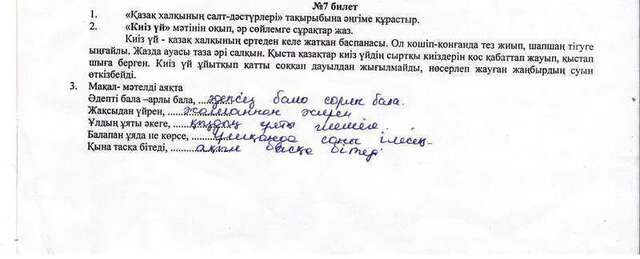 №7 билет
1. «Қазақ халқының салт-дәстүрлері» тақырыбына әңгіме құрастыр.
2. «Киіз үй» мәтінін оқып, әр сөйлемге сұрақтар жаз.
Киіз үй - қазақ халқының ертеден келе жатқан баспанасы. Ол көшіп-қонғанда тез жиып, шапшаң тігуге
ыңғайлы. Жазда ауасы таза әрі салқын. Қыста қазақтар киіз үйдің сыртқы киіздерін қос қабаттап жауып, қыстап
шыға берген. Киіз үй ұйытқып қатты соққан дауылдан жығылмайды, нөсерлеп жауған жаңбырдың суын
өткізбейді.
3. Мақал- мәтелді аяқта
Әдепті бала –арлы бала, ...әдепсіз бала сорлы бала.
Жақсыдан үйрен, ...жаманнан жирен
Ұлдың ұяты әкеге, ...қыздың ұяты шешеге.
Балапан ұяда не көрсе, ...ұшқанда соны ілесең.
Қына тасқа бітеді, ...ақыл басқа бітер